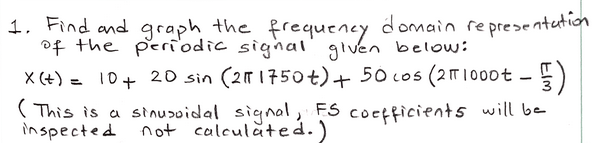 1. Find and graph the frequency domain representation
of the periodic signal given below:
x(t) = 10 + 20 sin (2π1750t) + 50 cos (2π1000t - π/3)
(This is a sinusoidal signal, FS coefficients will be
inspected not calculated.)